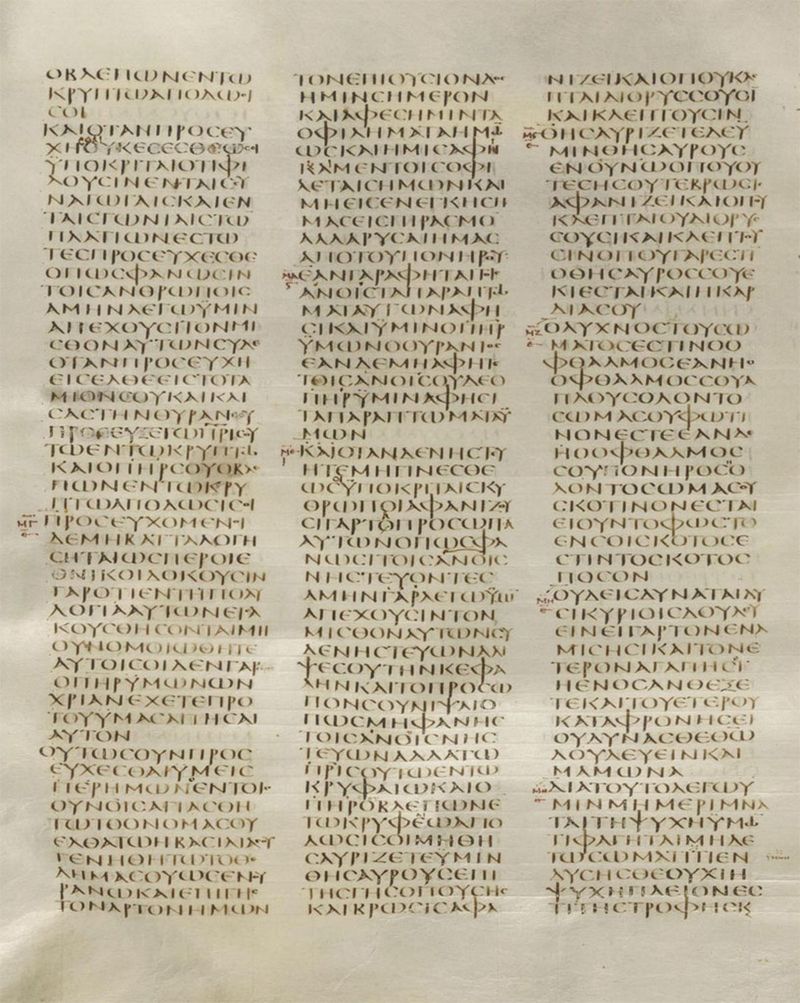 ΟΒΛΕΠΩΝΕΝΤΩ
ΚΡΥΠΤΩΑΠΟΔΩϹΙ
ϹΟΙ
ΚΑΙΟΤΑΝΠΡΟϹΕΥ
ΧΗΟΥΚΕϹΕϹΘΕΩϹΟΙ
ΥΠΟΚΡΙΤΑΙΟΤΙΦΙ
ΛΟΥϹΙΝΕΝΤΑΙϹϹΥ
ΝΑΓΩΓΑΙϹΚΑΙΕΝ
ΤΑΙϹΓΩΝΙΑΙϹΤΩ
ΠΛΑΤΙΩΝΕϹΤΩ
ΤΕϹΠΡΟϹΕΥΧΕϹΘΕ
ΟΠΩϹΦΑΝΩϹΙΝ
ΤΟΙϹΑΝΘΡΩΠΟΙϹ
ΑΜΗΝΛΕΓΩΥΜΙΝ
ΑΠΕΧΟΥϹΙΤΟΝΜΙ
ϹΘΟΝΑΥΤΩΝϹΥΔΕ
ΟΤΑΝΠΡΟϹΕΥΧΗ
ΕΙϹΕΛΘΕΕΙϹΤΟΤΑ
ΜΙΟΝϹΟΥΚΑΙΚΛΙ
ϹΑϹΤΗΝΘΥΡΑΝϹΟΥ
ΠΡΟϹΕΥΞΕΤΩΠΡΙϹΟΥ
ΤΩΕΝΤΩΚΡΥΠΤΩ
ΚΑΙΟΠΗΡϹΟΥΟΒΛΕ
ΠΩΝΕΝΤΩΚΡΥ
ΠΤΩΑΠΟΔΩϹΙϹΟΙ
ΜΓ ΠΡΟϹΕΥΧΟΜΕΝΟΙ
ΔΕΜΗΒΑΤΤΑΛΟΓΗ
ϹΗΤΑΙΩϹΠΕΡΟΙΕ
ΘΝΙΚΟΙΔΟΚΟΥϹΙΝ
ΓΑΡΟΤΙΕΝΤΗΠΟΛΥ
ΛΟΓΙΑΑΥΤΩΝΕΙϹΑ
ΚΟΥϹΘΗϹΟΝΤΑΙΜΗ
ΟΥΝΟΜΟΙΩΘΗΤΕ
ΑΥΤΟΙϹΟΙΔΕΝΓΑΡ
ΟΠΗΡΥΜΩΝΩΝ
ΧΡΙΑΝΕΧΕΤΕΠΡΟ
ΤΟΥΥΜΑϹΑΙΤΗϹΑΙ
ΑΥΤΟΝ
ΟΥΤΩϹΟΥΝΠΡΟϹ
ΕΥΧΕϹΘΑΙΥΜΕΙϹ
ΠΕΡΗΜΩΝΟΕΝΤΟΙϹ
ΟΥΝΟΙϹΑΓΙΑϹΘΗ
ΤΩΤΟΟΝΟΜΑϹΟΥ
ΕΛΘΑΤΩΗΒΑϹΙΛΙΑϹΟΥ
ΓΕΝΗΘΗΤΩΤΟΘΕ
ΛΗΜΑϹΟΥΩϹΕΝΟΥ
ΡΑΝΩΚΑΙΕΠΙΓΗϹ
ΤΟΝΑΡΤΟΝΗΜΩΝ
ΤΟΝΕΠΙΟΥϹΙΟΝΔΟϹ
ΗΜΙΝϹΗΜΕΡΟΝ
ΚΑΙΑΦΕϹΗΜΙΝΤΑ
ΟΦΙΛΗΜΑΤΑΗΜΩ
ΩϹΚΑΙΗΜΙϹΑΦΗ
ΚΑΜΕΝΤΟΙϹΟΦΙ
ΛΕΤΑΙϹΗΜΩΝΚΑΙ
ΜΗΕΙϹΕΝΕΓΚΗϹΗ
ΜΑϹΕΙϹΠΙΡΑϹΜΟ
ΑΛΛΑΡΥϹΑΙΗΜΑϹ
ΑΠΟΤΟΥΠΟΝΗΡΟΥ
ΜΔ ΕΑΝΓΑΡΑΦΗΤΑΙΤΟΙϹ
ΑΝΟΙϹΤΑΠΑΡΑΠΤΩ
ΜΑΤΑΑΥΤΩΝΑΦΗ
ϹΙΚΑΙΥΜΙΝΟΠΗΡ
ΥΜΩΝΟΟΥΡΑΝΙΟϹ
ΕΑΝΔΕΜΗΑΦΗΤΕ
ΤΟΙϹΑΝΟΙϹΟΥΔΕΟ
ΠΗΡΥΜΙΝΑΦΗϹΙ
ΤΑΠΑΡΑΠΤΩΜΑΤΑΥ
ΜΩΝ
ΜΕ ΚΑΙΟΤΑΝΔΕΝΗϹΤΕΥ
ΗΤΕΜΗΓΙΝΕϹΘΕ
ΩϹΥΠΟΚΡΙΤΑΙϹΚΥ
ΘΡΩΠΟΙΑΦΑΝΙΖΟΥ
ϹΙΓΑΡΤΟΠΡΟϹΩΠΑ
ΑΥΤΩΝΟΠΩϹΦΑ
ΝΩϹΙΤΟΙϹΑΝΟΙϹ
ΝΗϹΤΕΥΟΝΤΕϹ
ΑΜΗΝΓΑΡΛΕΓΩΥΜΙ
ΑΠΕΧΟΥϹΙΝΤΟΝ
ΜΙϹΘΟΝΑΥΤΩΝϹΥ
ΔΕΝΗϹΤΕΥΩΝΑΛΙ
ΨΕϹΟΥΤΗΝΚΕΦΑ
ΛΗΝΚΑΙΤΟΠΡΟϹΩ
ΠΟΝϹΟΥΝΙΨΑΙΟ
ΠΩϹΜΗΦΑΝΗϹ
ΤΟΙϹΑΝΟΙϹΝΗϹ
ΤΕΥΩΝΑΛΛΑΤΩ
ΠΡΙϹΟΥΤΩΕΝΤΩ
ΚΡΥΦΑΙΩΚΑΙΟ
ΠΗΡΟΒΛΕΠΩΝΕ
ΤΩΚΡΥΦΕΩΑΠΟ
ΔΩϹΙϹΟΙΜΗΘΗ
ϹΑΥΡΙΖΕΤΕΥΜΙΝ
ΘΗϹΑΥΡΟΥϹΕΠΙ
ΤΗϹΓΗϹΟΠΟΥϹΗϹ
ΚΑΙΒΡΩϹΙϹΑΦΑ
ΝΙΖΕΙΚΑΙΟΠΟΥΚΛΕ
ΠΤΑΙΔΙΟΡΥϹϹΟΥϹΙ
ΚΑΙΚΛΕΠΤΟΥϹΙΝ
ΜϚ ΘΗϹΑΥΡΙΖΕΤΕΔΕΥ
ΜΙΝΘΗϹΑΥΡΟΥϹ
ΕΝΟΥΝΩΟΠΟΥΟΥ
ΤΕϹΗϹΟΥΤΕΒΡΩϹΙϹ
ΑΦΑΝΙΖΕΙΚΑΙΟΠΟΥ
ΚΛΕΠΤΑΙΟΥΔΙΟΡΥϹ
ϹΟΥϹΙΚΑΙΚΛΕΠΤΟΥ
ϹΙΝΟΠΟΥΓΑΡΕϹΤΙ
ΟΘΗϹΑΥΡΟϹϹΟΥΕ
ΚΙΕϹΤΑΙΚΑΙΗΚΑΡ
ΔΙΑϹΟΥ
ΜΖ ΟΛΥΧΝΟϹΤΟΥϹΩ
ΜΑΤΟϹΕϹΤΙΝΟΟ
ΦΘΑΛΜΟϹΕΑΝΗ
ΟΦΘΑΛΜΟϹϹΟΥΑ
ΠΛΟΥϹΟΛΟΝΤΟ
ϹΩΜΑϹΟΥΦΩΤΙ
ΝΟΝΕϹΤΕΕΑΝΔΕ
ΗΟΟΦΘΑΛΜΟϹ
ϹΟΥΠΟΝΗΡΟϹΟ
ΛΟΝΤΟϹΩΜΑϹΟΥ
ϹΚΟΤΙΝΟΝΕϹΤΑΙ
ΕΙΟΥΝΤΟΦΩϹΤΟ
ΕΝϹΟΙϹΚΟΤΟϹΕ
ϹΤΙΝΤΟϹΚΟΤΟϹ
ΠΟϹΟΝ
ΜΗ ΟΥΔΕΙϹΔΥΝΑΤΑΙΔΥ
ϹΙΚΥΡΙΟΙϹΔΟΥΛΕΥ
ΕΙΝΕΙΓΑΡΤΟΝΕΝΑ
ΜΙϹΗϹΙΚΑΙΤΟΝΕ
ΤΕΡΟΝΑΓΑΠΗϹΙ
ΗΕΝΟϹΑΝΘΕΞΕ
ΤΕΚΑΙΤΟΥΕΤΕΡΟΥ
ΚΑΤΑΦΡΟΝΗϹΕΙ
ΟΥΔΥΝΑϹΘΕΘΩ
ΔΟΥΛΕΥΕΙΝΚΑΙ
ΜΑΜΩΝΑ
ΜΘ ΔΙΑΤΟΥΤΟΛΕΓΩΥ
ΜΙΝΜΗΜΕΡΙΜΝΑ
ΤΑΙΤΗΨΥΧΗΥΜΩ
ΤΙΦΑΓΗΤΑΙΜΗΔΕ
ΤΩϹΩΜΑΤΙΤΙΕΝ
ΔΥϹΗϹΘΕΟΥΧΙΗ
ΨΥΧΗΠΛΕΙΟΝΕϹ
ΤΙΤΗϹΤΡΟΦΗϹΚ